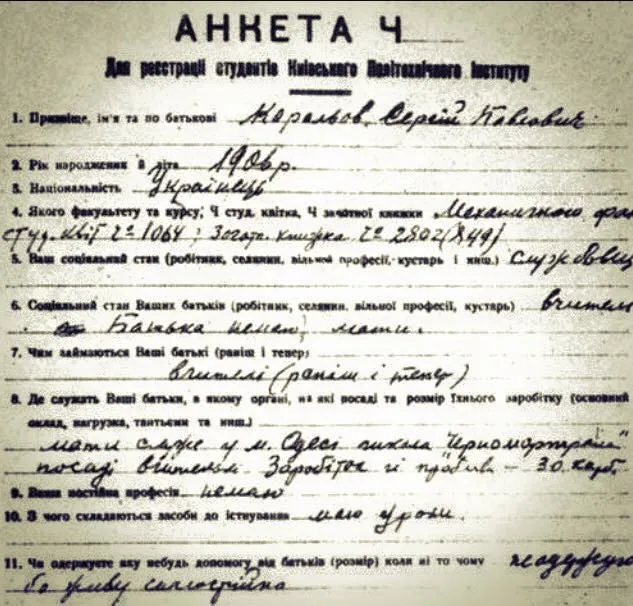 АНКЕТА Ч
Для реєстрації студентів Київського Політехнічного Інституту
1. Призвіще, ім'я та по батькові Корольов Сергій Павлович
2. Рік народження й літа 1906 р.
3. Національність Українець
4. Якого факультету та курсу, Ч студ. квітка, Ч зачотної книжки Механичного фак
студ. квіт Ч 1064; Зочотн. книжка Ч 2802 (849)
5. Ваш соціяльний стан (робітник, селянин, вільної професії, кустарь і инш.) службовец
6. Соціяльний стан Ваших батьків (робітник, селянин, вільної професії, кустарь) вчитель
Батька немаю, мати.
7. Чим займаються Ваші батькі (раніш і тепер)
вчителі (раніш і тепер)
8. Де служать Ваші батьки, в якому органі, на які посаді та розмір їхнього заробітку (основний
оклад, нагрузка, тантьєми та инш.)
мати служе у м. Одесі школа
посаді вчительки. Заробіток її 30 карб.
9. Ваша постійна професія немаю
10. З чого складаються засоби до істнування маю уроки.
11. Чи одержуєте яку небудь допомогу від батьків (розмір) коли ні то чому
бо живу самостійно